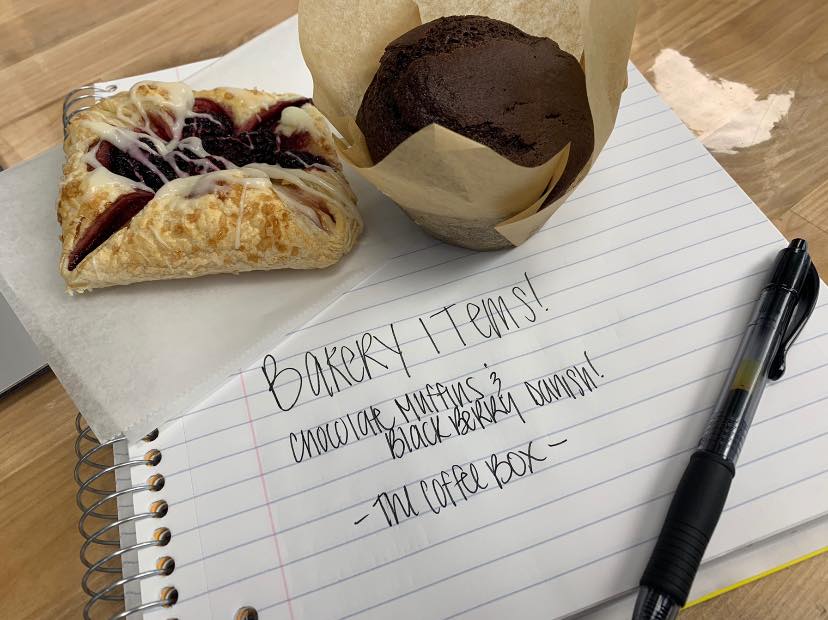 BAKERY ITEMS!
CHOCOLATE MUFFINS &
BLACKBERRY DANISH!
- THE COFFEE BOX -